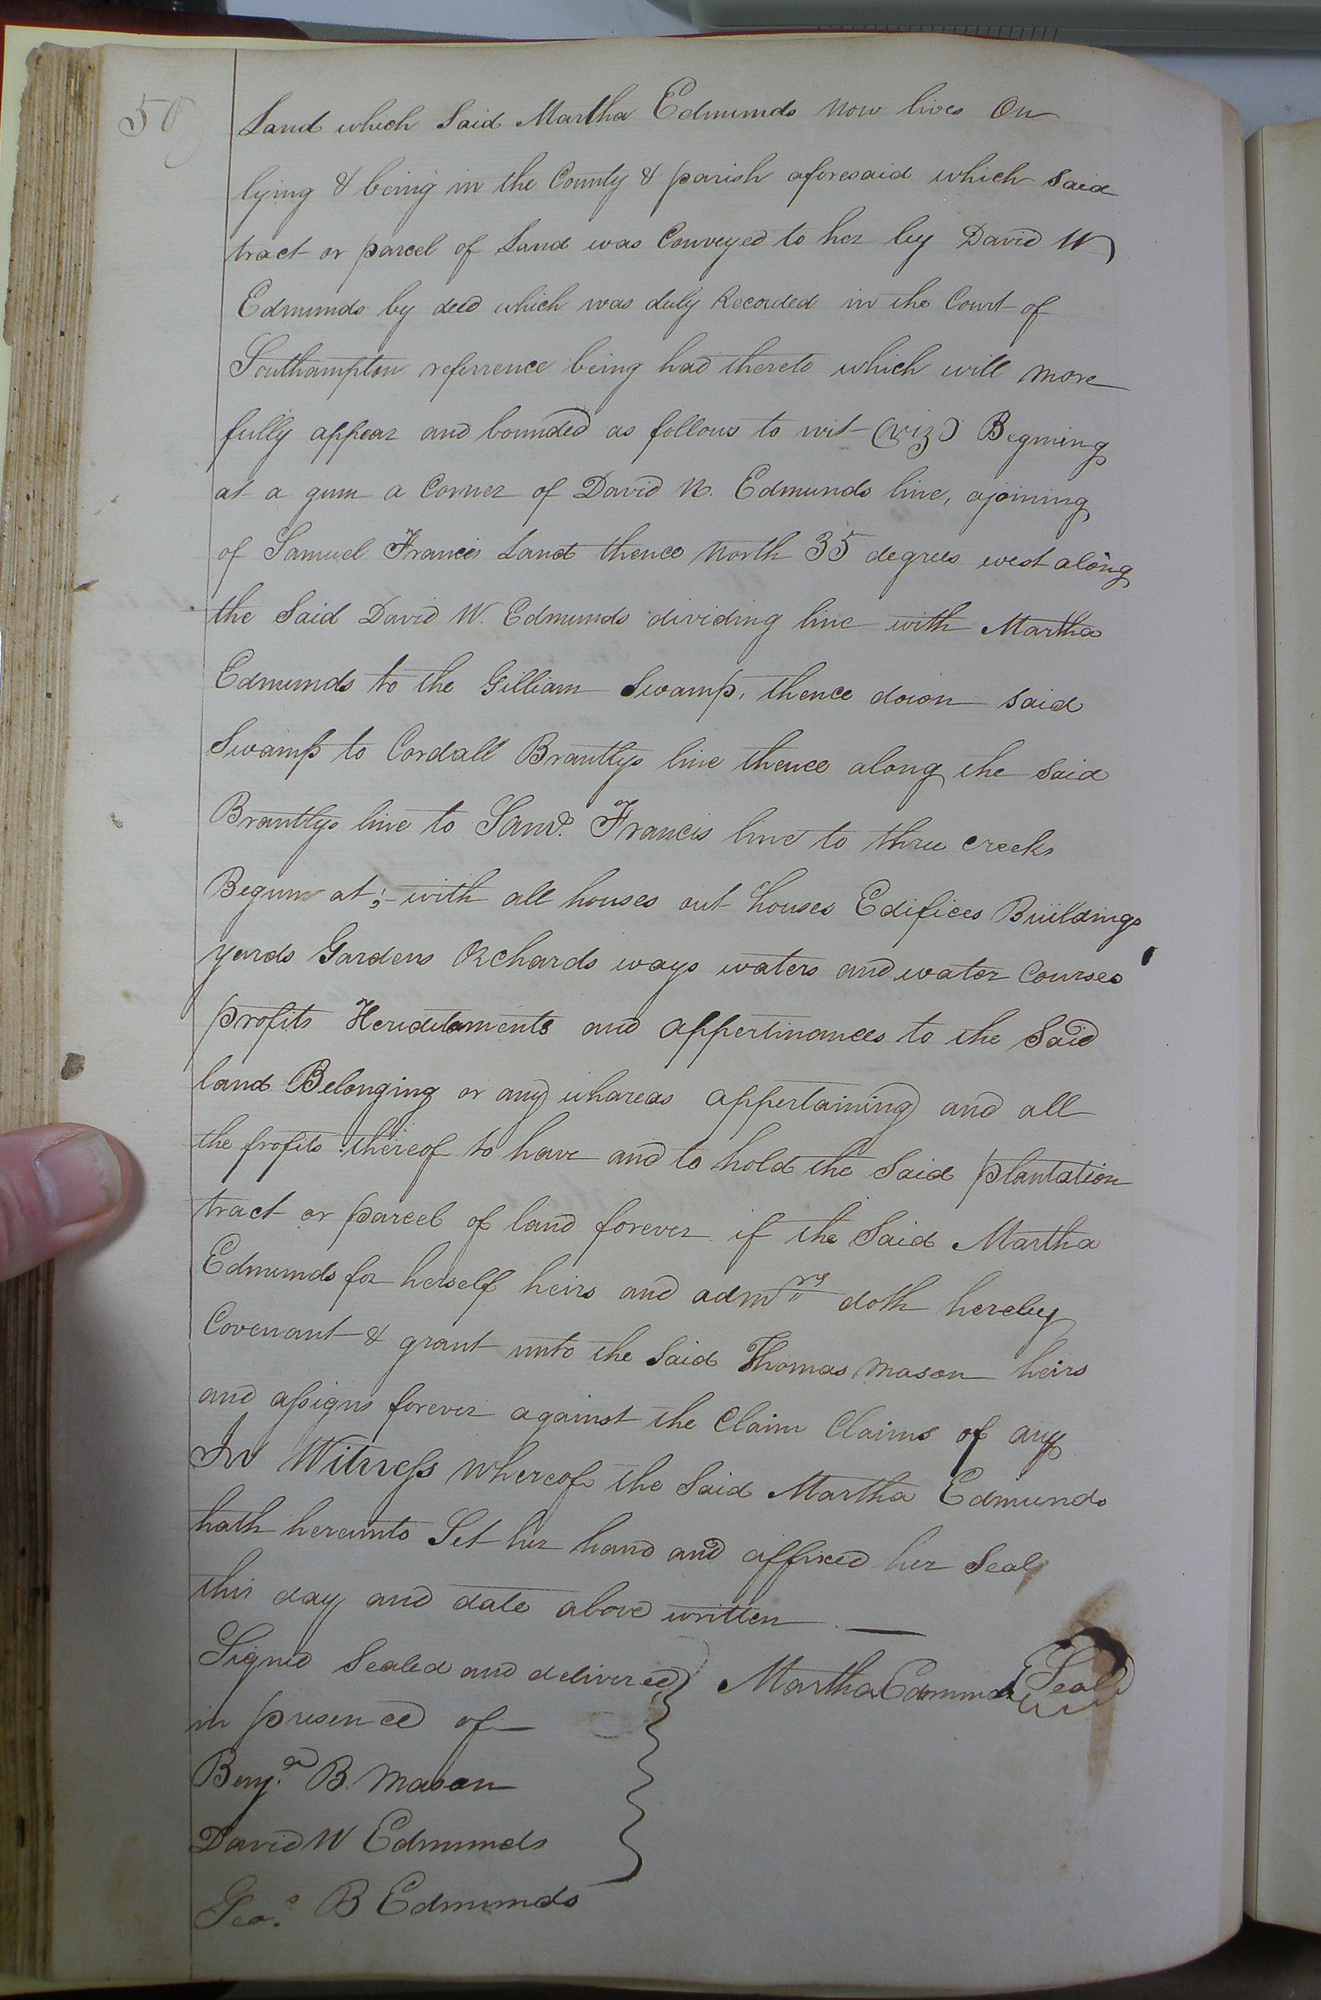 50
Land which Said Martha Edmunds now lives On
lying & being in the County & parish aforesaid which Said
tract or parcel of Land was Conveyed to her by David W
Edmunds by deed which was duly Recorded in the Court of
Southampton referrence being had thereto which will more
fully appear and bounded as follows to wit (viz) Begining
at a gum a Corner of David W. Edmunds line, ajoining
of Samuel Francis Land thence North 35 degrees west along
the Said David W. Edmunds dividing line with Martha
Edmunds to the Gilliam Swamp, thence down Said
Swamp to Cordall Brantlys line thence along the Said
Brantlys line to Saml. Francis line to three creeks
Begun at;- with all houses out houses Edifices Buildings
yards Gardens Orchards ways waters and water Courses
profits Hereditaments and appertinances to the Said
land Belonging or any whareas appertaining and all
the profits thereof to have and to hold the Said plantation
tract or parcel of land forever if the Said Martha
Edmunds for herself heirs and admrs doth hereby
Covenant & grant unto the Said Thomas Mason heirs
and assigns forever against the Claim Claims of any
In Witness whereof the Said Martha Edmunds
hath hereunto Set her hand and affixed her Seal
this day and date above written
Signed Sealed and delivered Martha Edmunds Seal
in presence of
Benj.n B. Mason
David W Edmunds
Geo.e B Edmunds